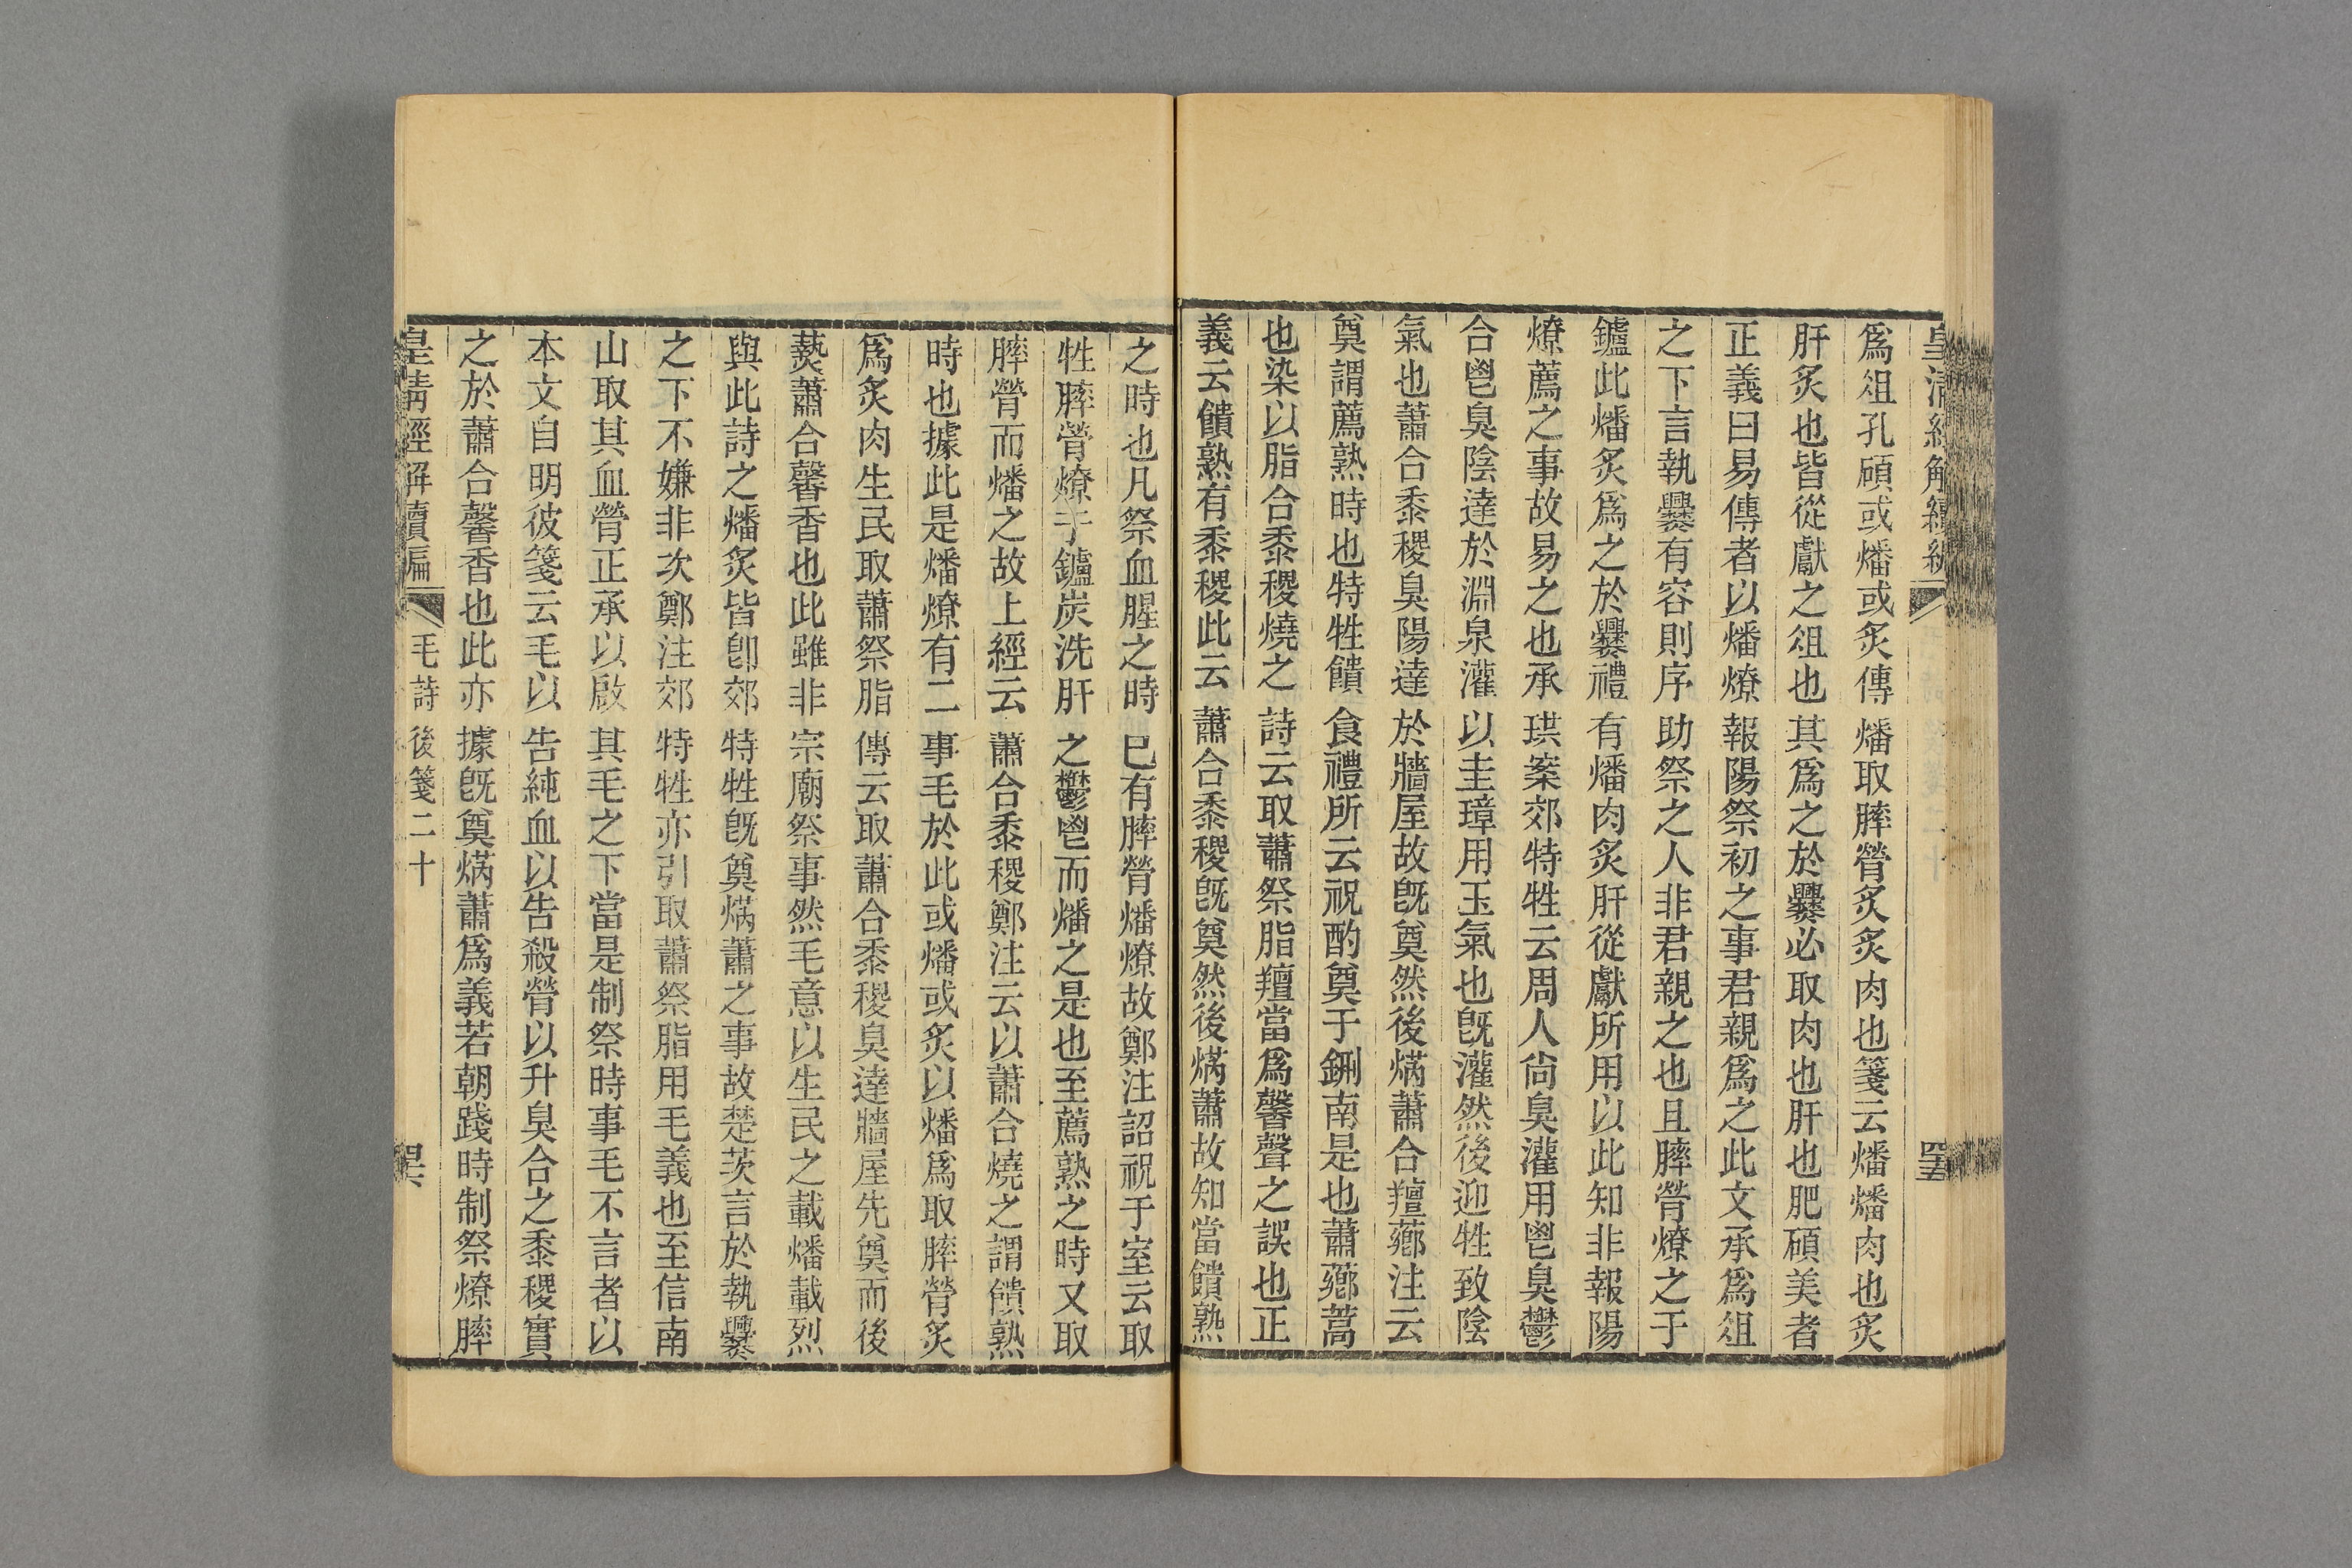 皇清經解續編
為俎孔碩或燔或炙傳燔取膟膋炙炙肉也箋云燔燔肉也炙
肝炙也皆從獻之俎也其為之於爨必取肉也肝也肥碩美者
正義曰易傳者以燔燎報陽祭初之事君親為之此文承為俎
之下言執爨有容則序助祭之人非君親之也且膟膋燎之于
鑪此燔炙為之於爨禮有燔肉炙肝從獻所用以此知非報陽
燎薦之事故易之也承珙案郊特牲云周人尙臭灌用鬯臭鬱
合鬯臭陰達於淵泉灌以圭璋用玉氣也旣灌然後迎牲致陰
氣也蕭合黍稷臭陽達於牆屋故旣奠然後焫蕭合羶薌注云
奠謂薦熟時也特牲饋食禮所云祝酌奠于鉶南是也蕭薌蒿
也染以脂合黍稷燒之詩云取蕭祭脂羶當為馨聲之誤也正
義云饋熟有黍稷此云蕭合黍稷旣奠然後焫蕭故知當饋熟
之時也凡祭血腥之時已有膟膋燔燎故鄭注詔祝于室云取
牲膟膋燎于鑪炭洗肝之鬱鬯而燔之是也至薦熟之時又取
膟膋而燔之故上經云蕭合黍稷鄭注云以蕭合燒之謂饋熟
時也據此是燔燎有二事毛於此或燔或炙以燔為取膟膋炙
為炙肉生民取蕭祭脂傳云取蕭合黍稷臭達牆屋先奠而後
爇蕭合馨香也此雖非宗廟祭事然毛意以生民之載燔載烈
與此詩之燔炙皆卽郊特牲旣奠焫蕭之事故楚茨言於執爨
之下不嫌非次鄭注郊特牲亦引取蕭祭脂用毛義也至信南
山取其血膋正承以啟其毛之下當是制祭時事毛不言者以
本文自明彼箋云毛以告純血以告殺膋以升臭合之黍稷實
之於蕭合馨香也此亦據旣奠焫蕭為義若朝踐時制祭燎膟
皇清經解續編 毛詩後箋二十